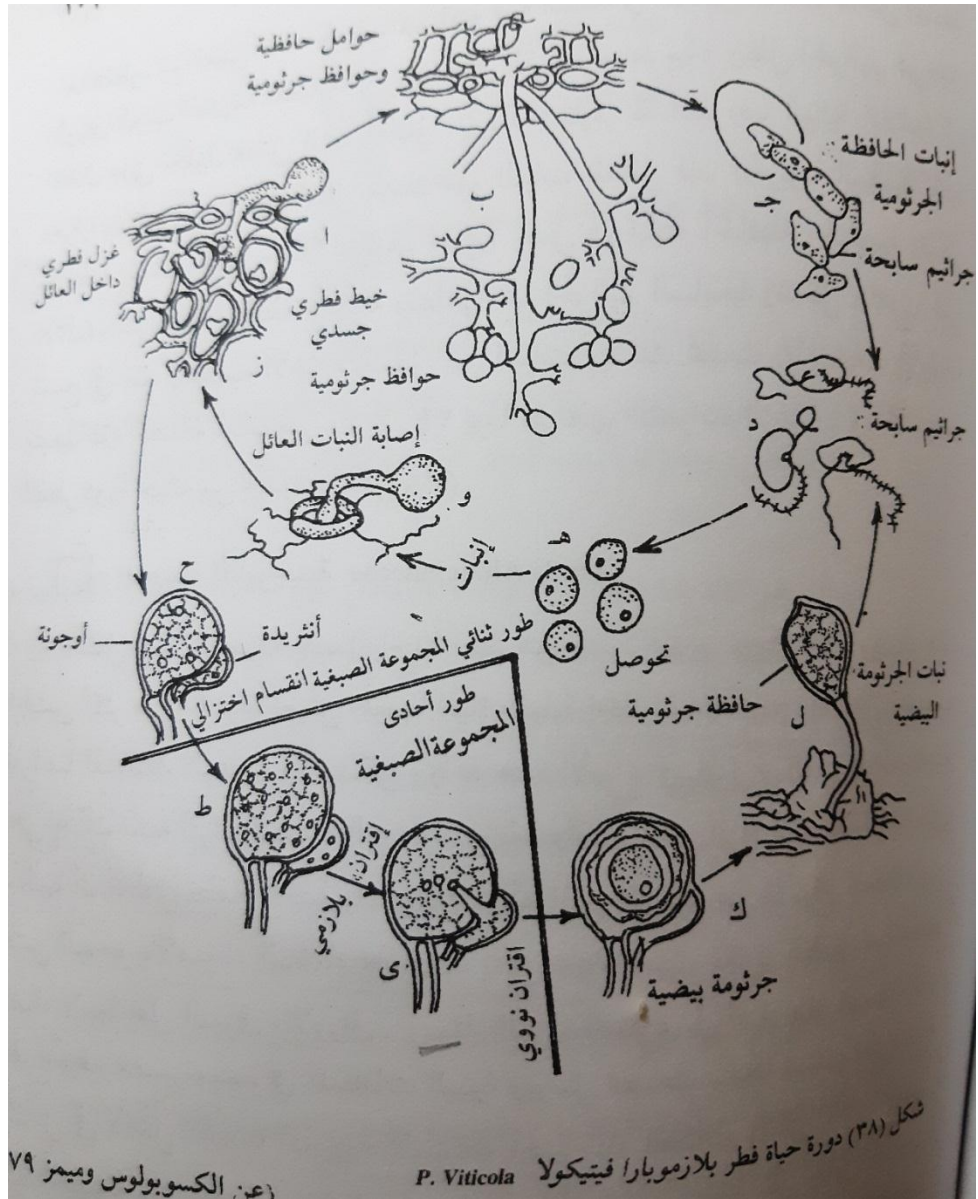 حوامل حافظية
وحوافظ جرثومية
إنبات الحافظة
الجرثومية
جـ
جراثيم سابحة
ب
ا
غزل فطري
داخل العائل
خيط فطري
جسدي
ز
حوافظ جرثومية
جراثيم سابحة
د
إصابة النبات العائل
و
هـ
إنبات
ح
أوجونة
أنثريدة
تحوصل
طور ثنائي المجموعة الصبغية انقسام اختزالي
طور أحادى
المجموعة الصبغية
نبات الجرثومة
البيضية
حافظة جرثومية
ل
ط
إقتران
بلازمي
ى
اقتران نووي
ك
جرثومة بيضية
شكل (٣٨) دورة حياة فطر بلازموبارا فيتيكولا P. Viticola
(عن الكسوبولوس وميمز ٧٩